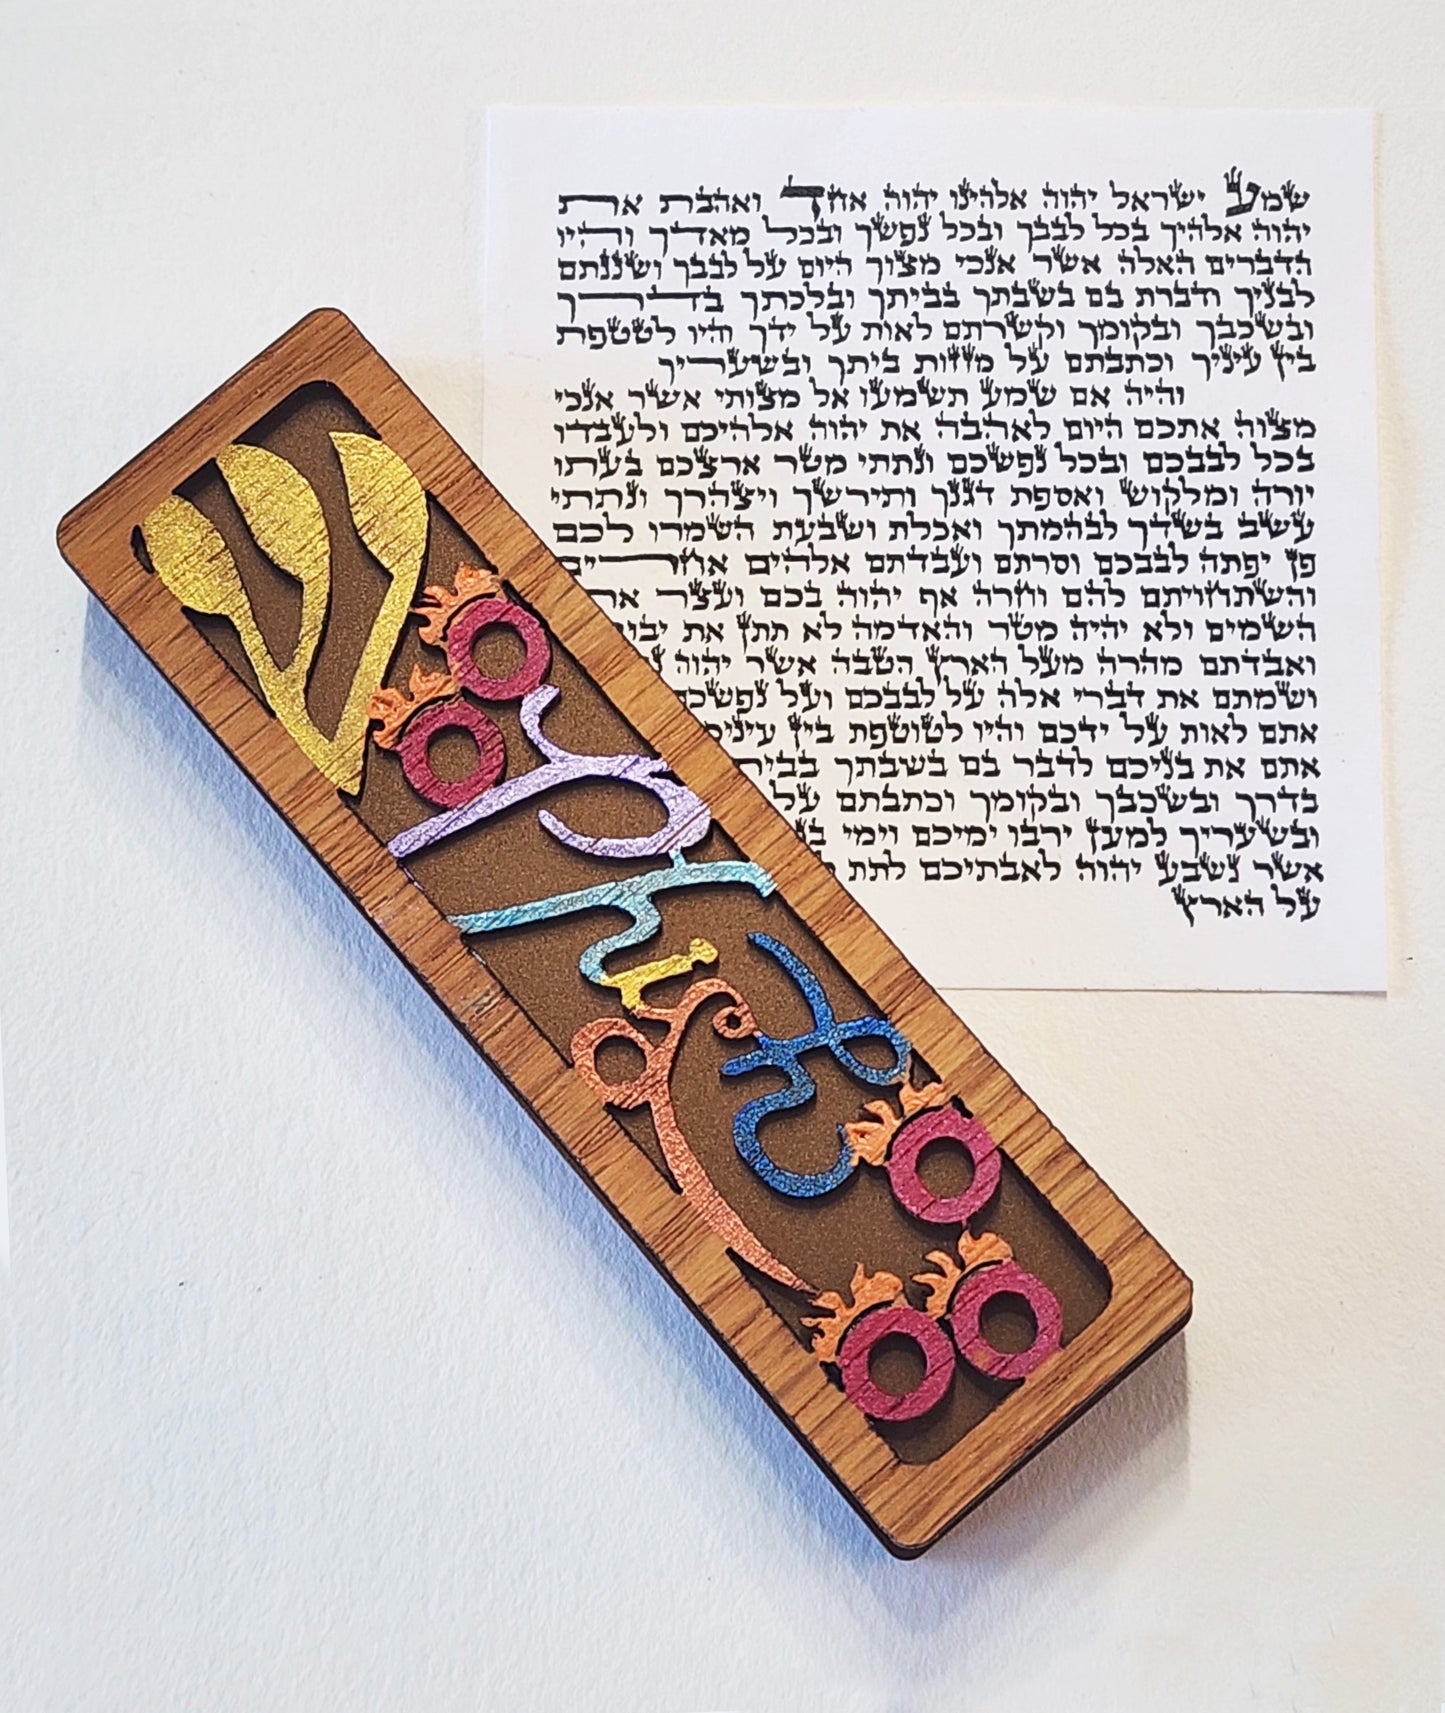 ש
שמע ישראל יהוה אלהינו יהוה אחד ואהבת את
יהוה אלהיך בכל לבבך ובכל נפשך ובכל מאדך והיו
הדברים האלה אשר אנכי מצוך היום על לבבך ושננתם
לבניך ודברת בם בשבתך בביתך ובלכתך בדרך
ובשכבך ובקומך וקשרתם לאות על ידך והיו לטטפת
בין עיניך וכתבתם על מזזות ביתך ובשעריך
והיה אם שמע תשמעו אל מצותי אשר אנכי
מצוה אתכם היום לאהבה את יהוה אלהיכם ולעבדו
בכל לבבכם ובכל נפשכם ונתתי מטר ארצכם בעתו
יורה ומלקוש ואספת דגנך ותירשך ויצהרך ונתתי
עשב בשדך לבהמתך ואכלת ושבעת השמרו לכם
פן יפתה לבבכם וסרתם ועבדתם אלהים אחרים
והשתחויתם להם וחרה אף יהוה בכם ועצר את
השמים ולא יהיה מטר והאדמה לא תתן את
ואבדתם מהרה מעל הארץ הטבה אשר יהוה
ושמתם את דברי אלה על לבבכם ועל נפשכם
אתם לאות על ידכם והיו לטוטפת בין עיניכם
אתם את בניכם לדבר בם בשבתך
בדרך ובשכבך ובקומך וכתבתם על
ובשעריך למען ירבו ימיכם וימי
אשר נשבע יהוה לאבתיכם לתת
על הארץ